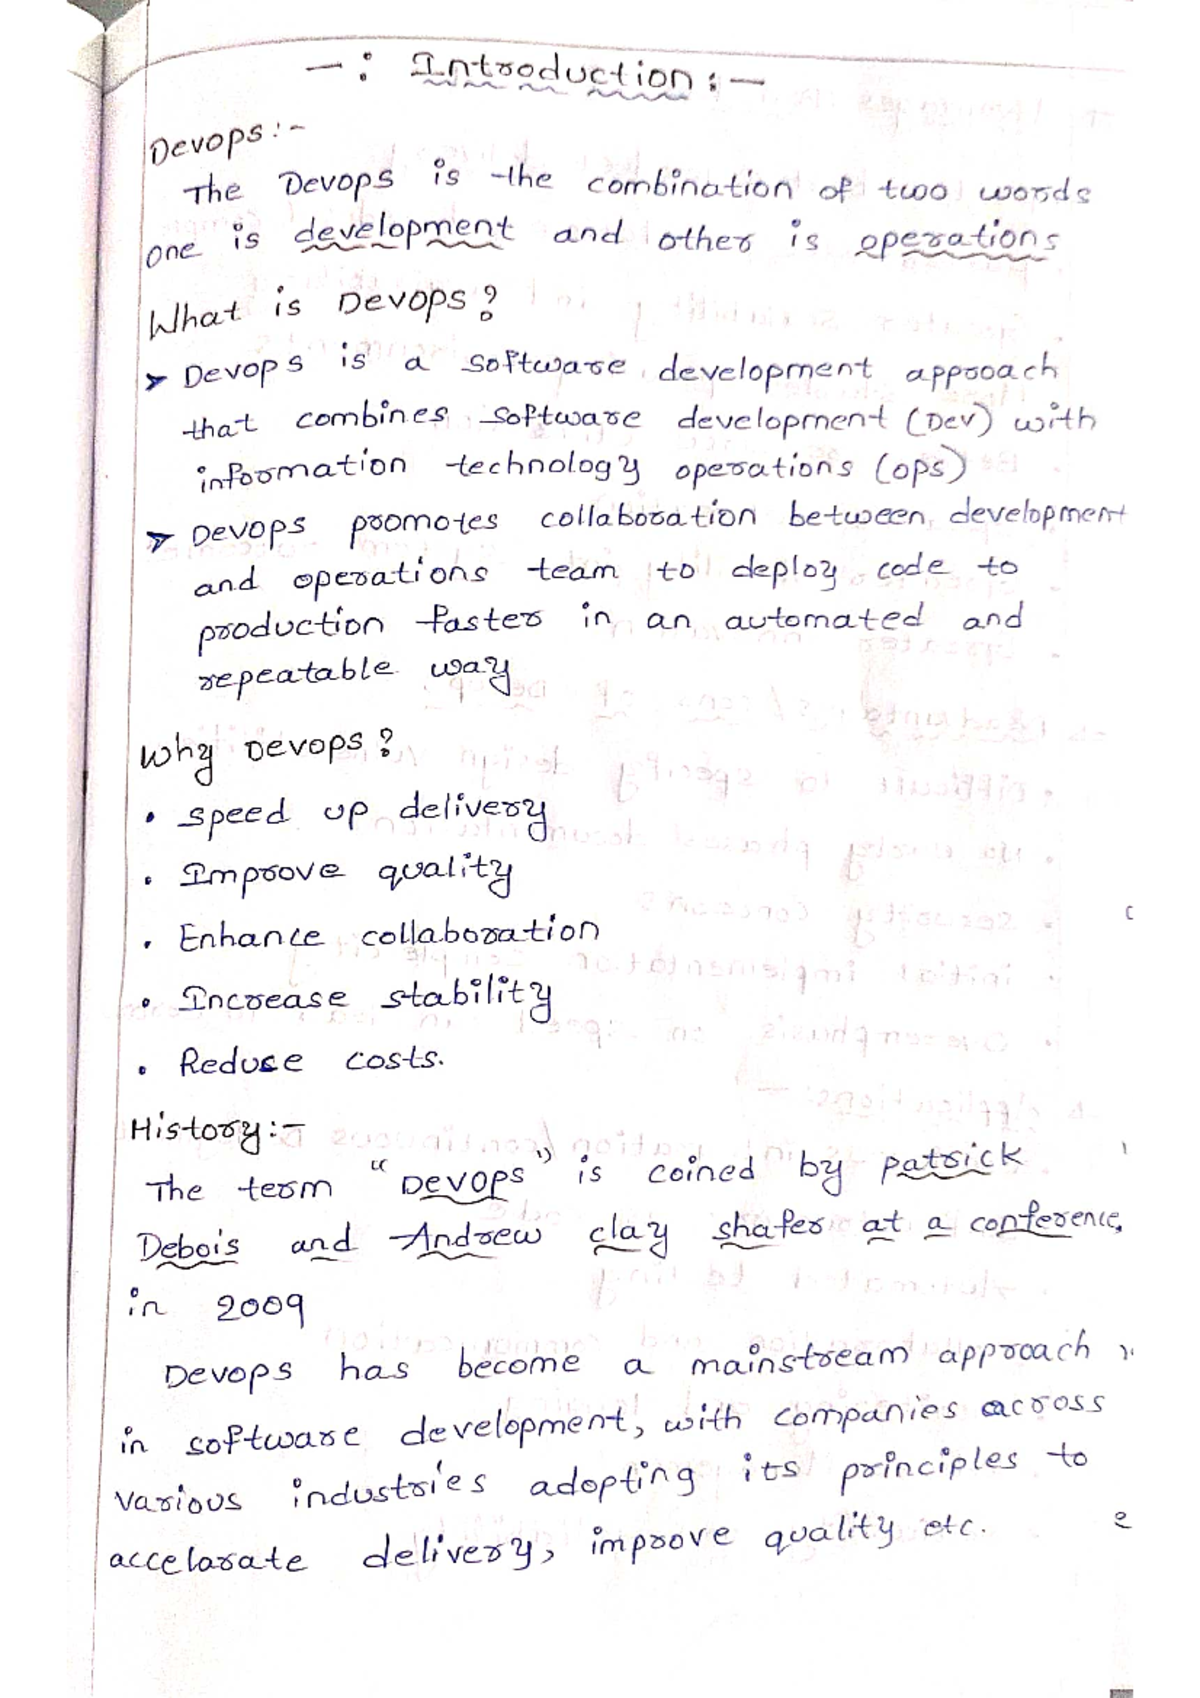 -: Introduction :-
Devops :-
The Devops is the combination of two words
one is development and other is operations
What is Devops?
➤ Devops is a software development approach
that combines software development (Dev) with
information technology operations (ops)
➤ Devops promotes collaboration between development
and operations team to deploy code to
production faster in an automated and
repeatable way
Why Devops?
• speed up delivery
• Improve quality
• Enhance collaboration
• Increase stability
• Reduce costs.
History:-
The term "Devops" is coined by patrick
Debois and Andrew clay shafer at a conference,
in 2009
Devops has become a mainstream approach
in software development, with companies across
various industries adopting its principles to
accelarate delivery, improve quality etc.